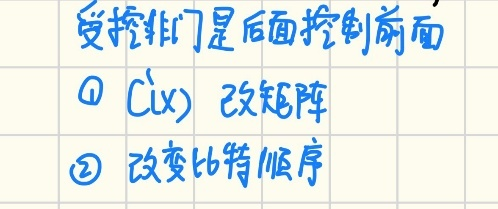 受控非门是后面控制前面
① C(x) 改矩阵
② 改变比特顺序